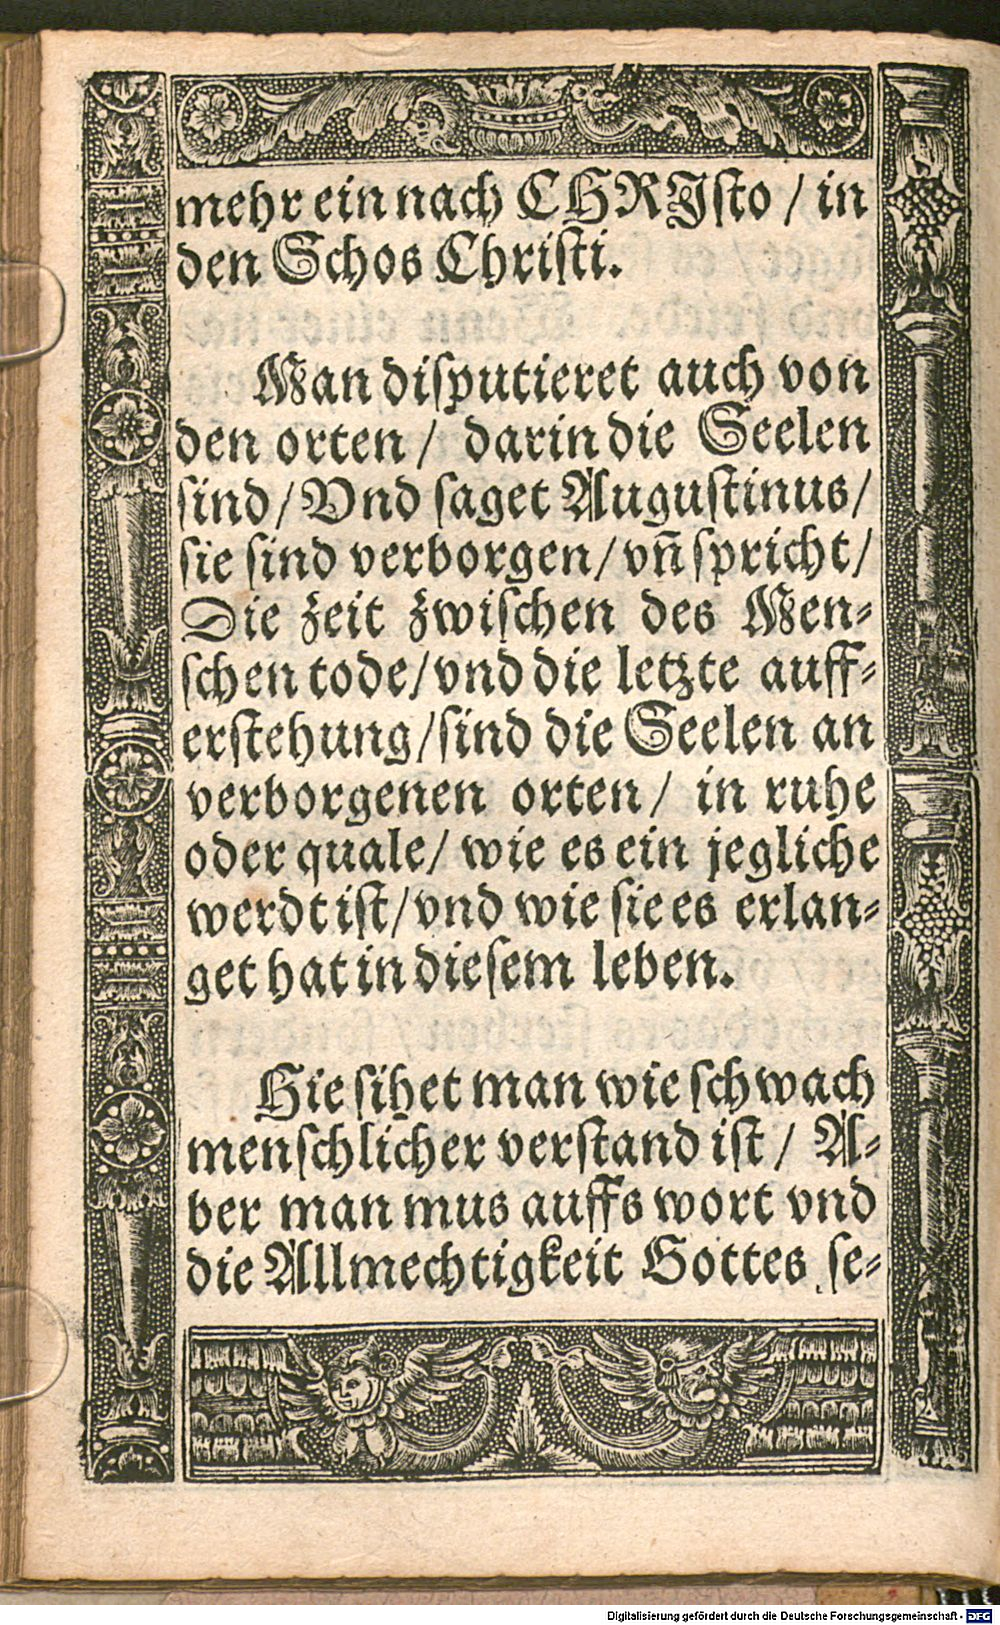 mehr ein nach CHRJsto / in
den Schos Christi.
Man disputieret auch von
den orten / darin die Seelen
sind / Vnd saget Augustinus /
sie sind verborgen / vn̄ spricht /
Die zeit zwischen des Men-
schen tode / vnd die letzte auff-
erstehung / sind die Seelen an
verborgenen orten / in ruhe
oder quale / wie es ein jegliche
werdt ist / vnd wie sie es erlan-
get hat in diesem leben.
Hie sihet man wie schwach
menschlicher verstand ist / A-
ber man mus auffs wort vnd
die Allmechtigkeit Gottes se-
Digitalisierung gefördert durch die Deutsche Forschungsgemeinschaft - DFG